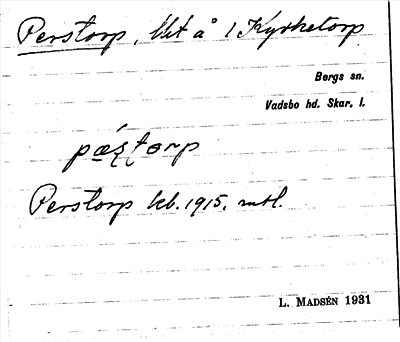 Perstorp, lht å 1 Kyrketorp
Bergs sn.
Vadsbo hd. Skar. l.
Perstorp kb. 1915, mtl.
L. MADSÉN 1931